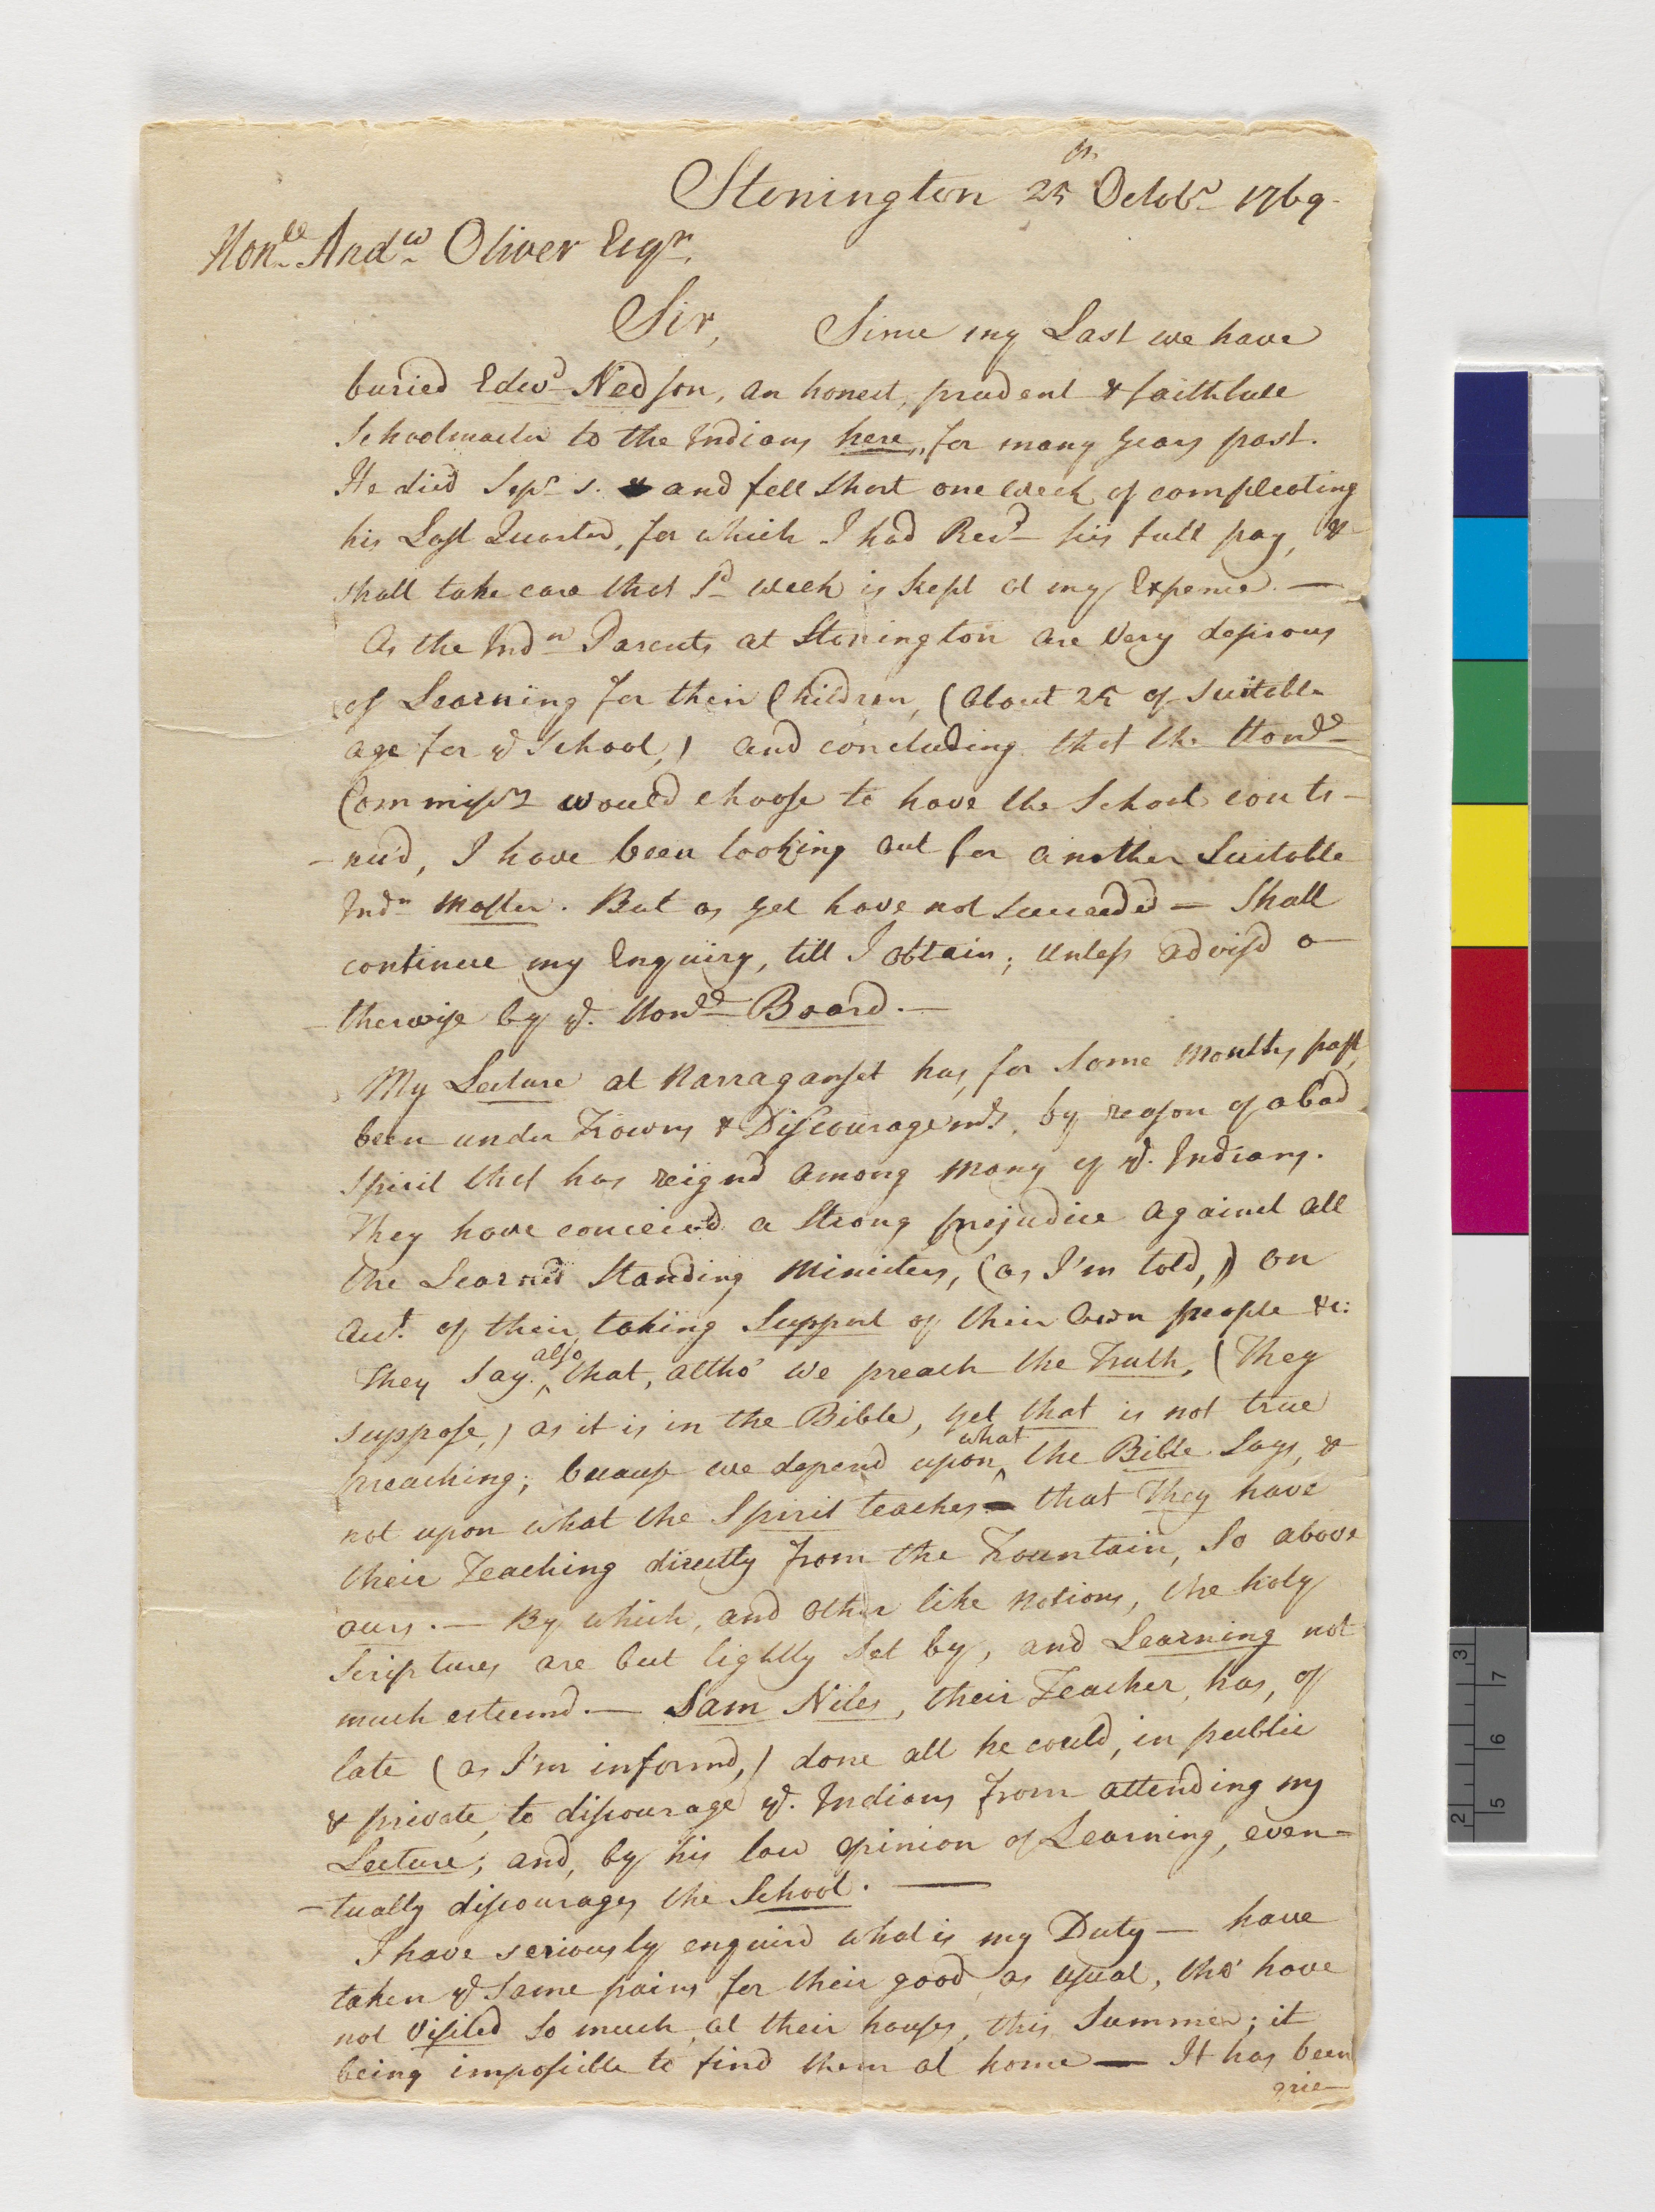 Stonington 25th Octobr 1769.
Honble Andw Oliver Esqr.
Sir, Since my Last we have
buried Edwd Nedson, an honest, prudent & faithfull
Schoolmaster to the Indians here, for many years past.
He died Sepr 5. and fell short one week of compleating
his Last Quarter, for which I had Recd his full pay, &
shall take care that sd week is kept at my Expence. —
As the Indn Parents at Stonington are very desirous
of Learning for their Children, (about 25 of suitable
age for ye School,) and concluding that the Honble
Commissrs would choose to have the School conti-
-nu'd, I have been looking out for another Suitable
Indn Master. But as yet have not succeeded — Shall
continue my Enquiry, till I obtain; unless advis'd o-
-therwise by ye. Honble Board. —
My Lecture at Narraganset has, for some months past,
been under Frowns & Discouragemts. by reason of a bad
spirit that has reignd among many of ye. Indians.
They have conceivd a strong prejudice against all
the Learned Standing Ministers, (as I'm told,) on
acct. of their taking Support of their own people &c:
They say also that, altho' we preach the Truth, (They
suppose,) as it is in the Bible, yet that is not true
preaching; because we depend upon what the Bible Says, &
not upon what the Spirit teaches — that They have
their Teaching directly from the Fountain, so above
ours. — By which, and other like notions, the holy
Scriptures are but lightly set by, and Learning not
much esteemd. — Sam Niles, their Teacher, has, of
late (as I'm informd,) done all he could, in public
& private, to discourage ye. Indians from attending my
Lecture; and, by his low opinion of Learning, even-
-tually discourages the School. —
I have seriously enquird what is my Duty — have
taken ye same pains for their good, as usual, tho' have
not visited so much, at their houses, this Summer; it
being impossible to find them at home — It has been
grie-
3
7
6
2
5